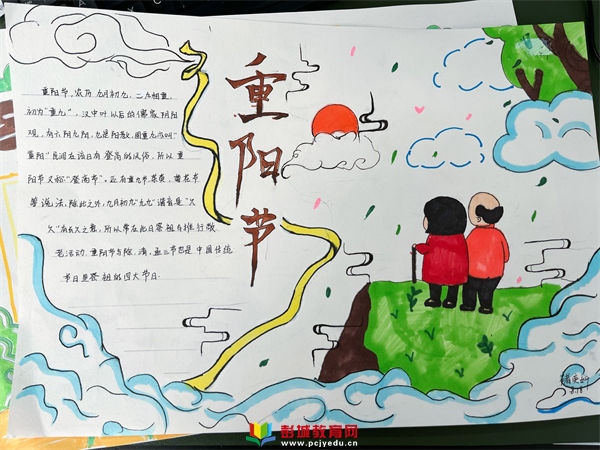 重阳节
重阳节，农历九月初九，二九相重，
初为"重九"，汉中叶以后的儒家阴阳
观，有六阴九阳，九是阳数，固重九亦叫"
重阳"民间在该日有登高的风俗，所以重
阳节又称"登高节"。还有重九节，茱萸，菊花节
等说法，除此之外，九月初九"九九"谐音是"久
久"有长久之意，所以常在此日祭祖与推行敬
老活动。重阳节与除，清，盂三节也是中国传统
节日里祭祖的四大节日.
彭城教育网
www.pcjyedu.cn